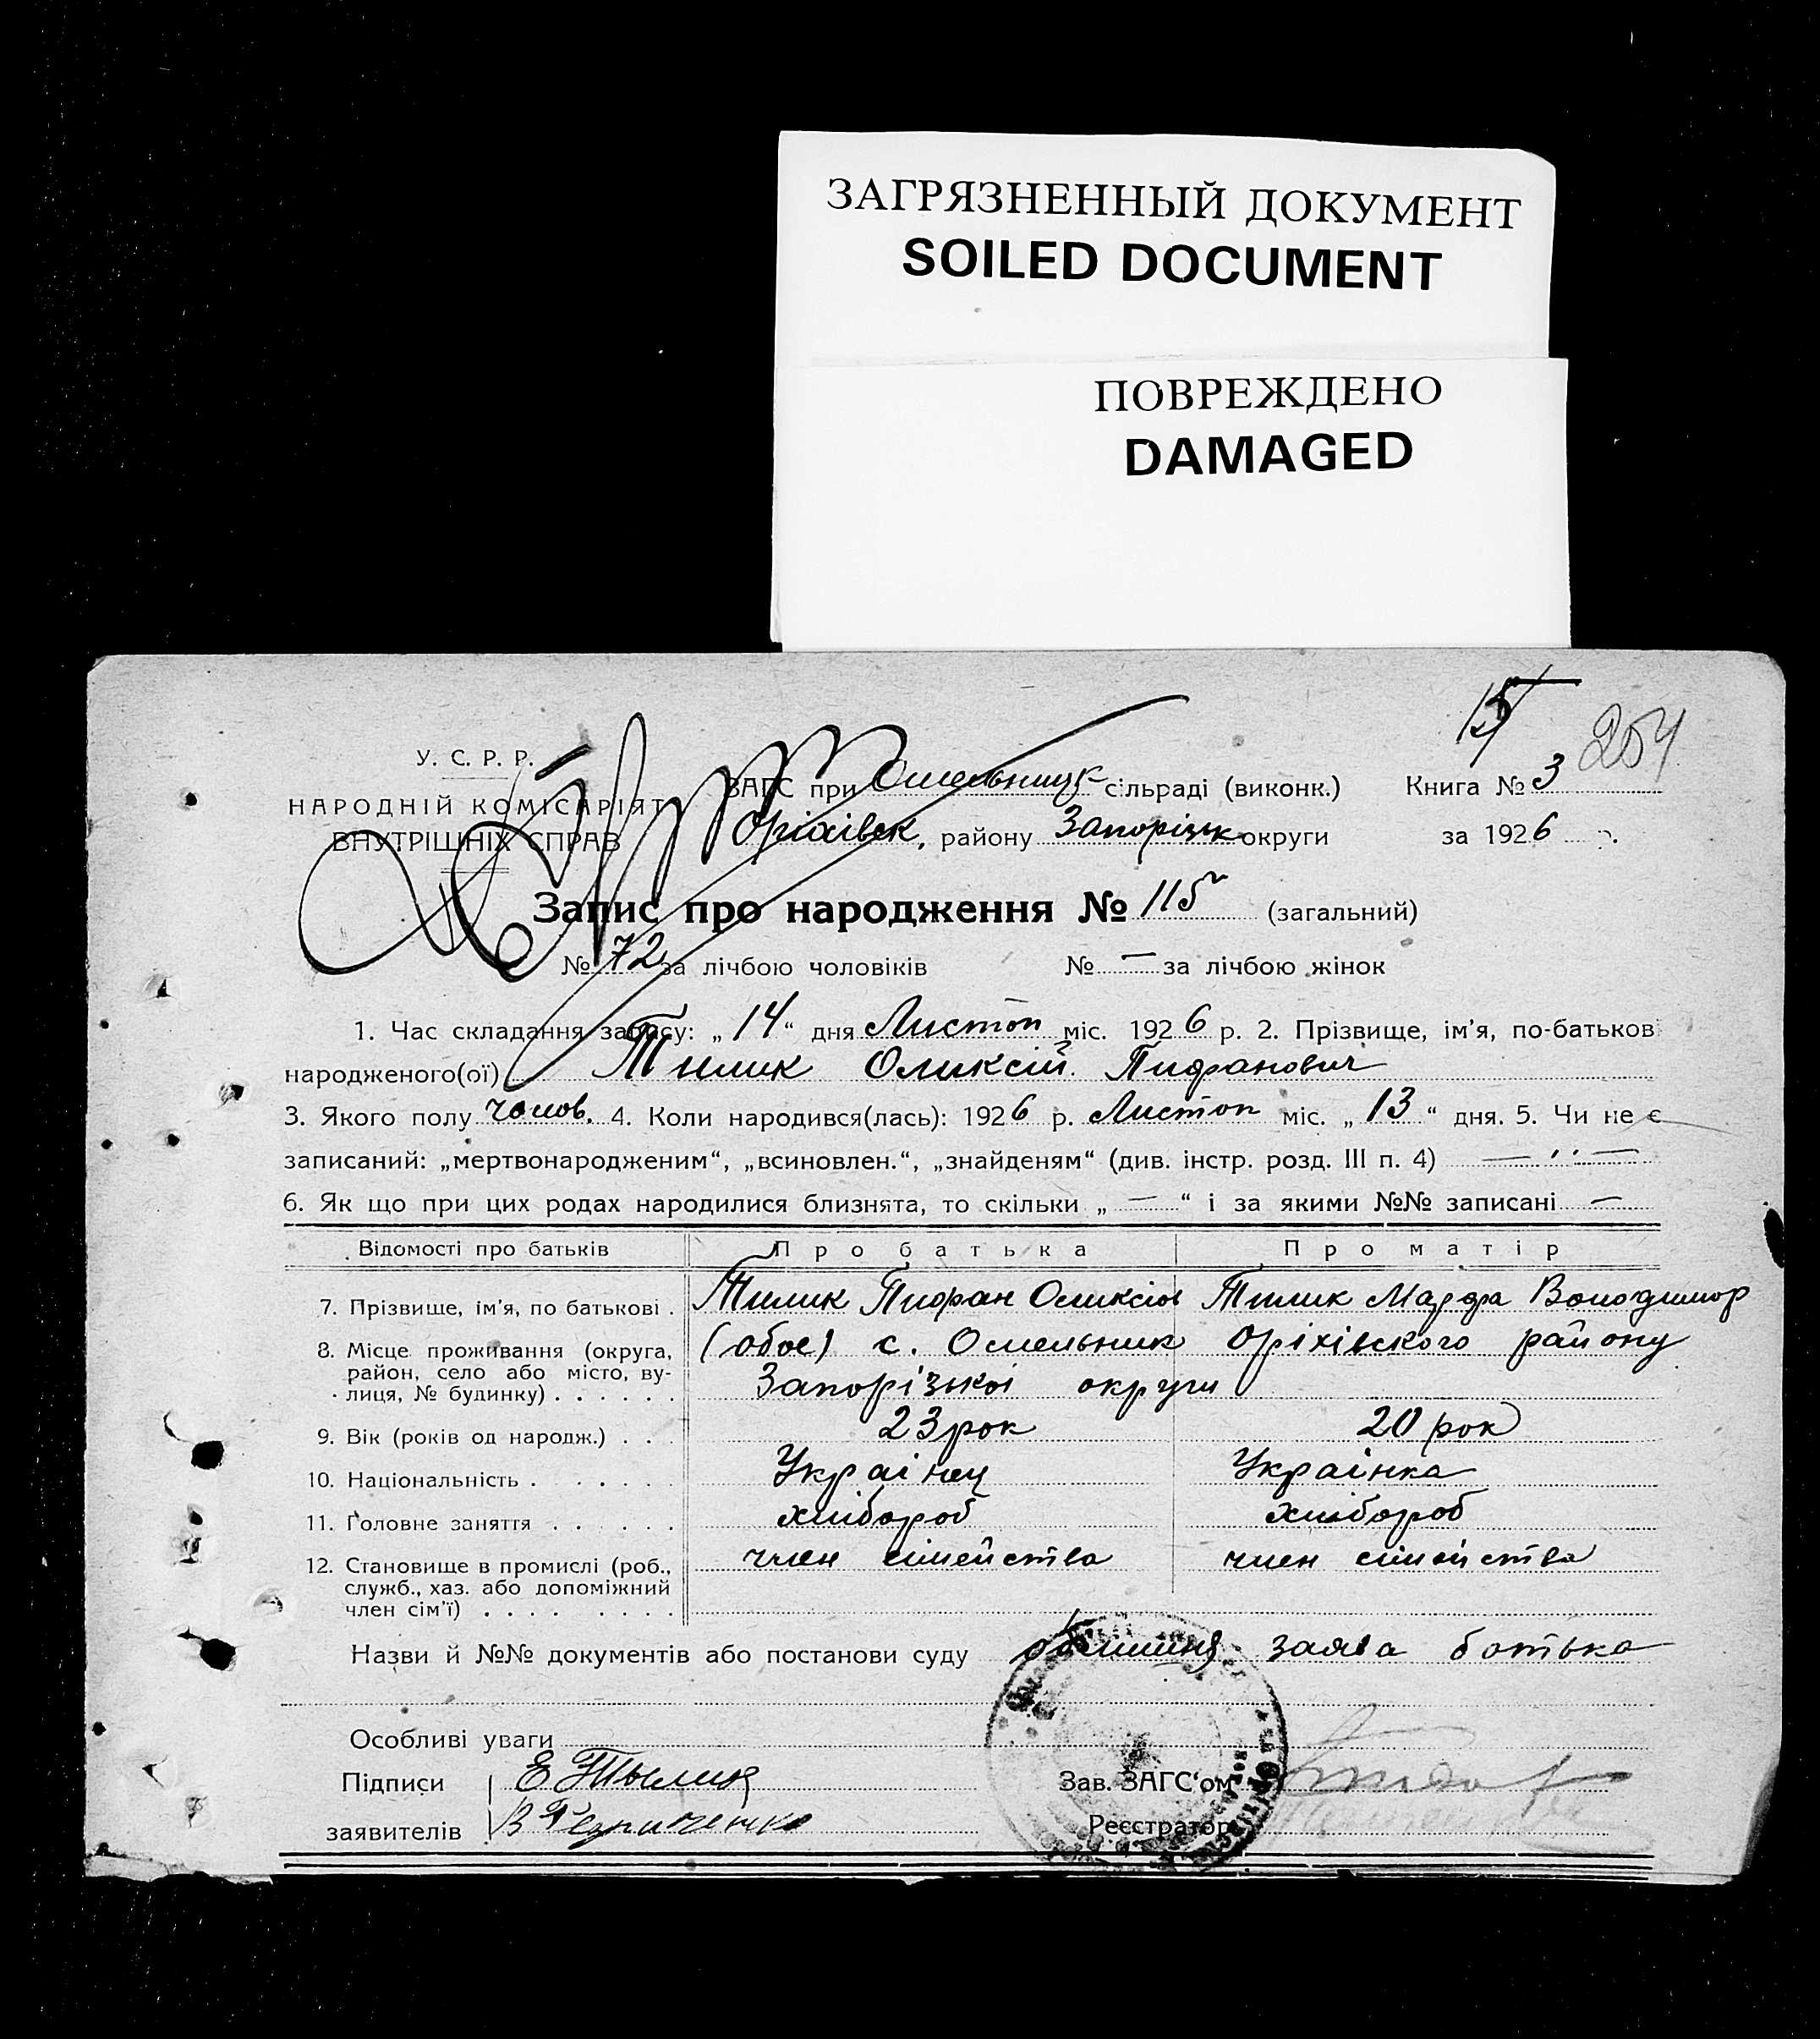 ЗАГРЯЗНЕННЫЙ ДОКУМЕНТ
SOILED DOCUMENT
ПОВРЕЖДЕНО
DAMAGED
15 254
У. С. Р. Р.
НАРОДНІЙ КОМІСАРІЯТ
ВНУТРІШНІХ СПРАВ
ЗАГС при Омельницк сільраді (виконк.) Книга № 3
Оріхівск, району Запорізьк округи за 1926 р.
Запис про народження № 115 (загальний)
№ 72 за лічбою чоловіків № — за лічбою жінок
1. Час складання запису: „14“ дня Листоп міс. 1926 р. 2. Прізвище, ім’я, по-батькові
народженого(ої) Тилик Оликсій Пифранович
3. Якого полу чолов. 4. Коли народився(лась): 1926 р. Листоп міс. „13“ дня. 5. Чи не є
записаний: „мертвонародженим“, „всиновлен.“, „знайденям“ (див. інстр. розд. III п. 4) —〃—
6. Як що при цих родах народилися близнята, то скільки „—“ і за якими №№ записані —
Відомості про батьків Про батька Про матір
7. Прізвище, ім’я, по батькові . Тилик Пифран Оликсіов Тилик Марфа Володимир
8. Місце проживання (округа, район, село або місто, вулиця, № будинку) . . . . . (обоє) с. Омельник Оріхівского району
Запорізькоі округи
9. Вік (років од народж.) . . . 23 рок 20 рок
10. Національність . . . . . Украінец Украінка
11. Головне заняття . . . . . хлібороб хлібороб
12. Становище в промислі (роб., служб., хаз. або допоміжний член сім’ї) . . . . . . . . член сімейства член сімейства
Назви й №№ документів або постанови суду заява батька
Особливі уваги
Підписи Е Тылик
заявителів В
Зав. ЗАГС‘ом
Реєстратор